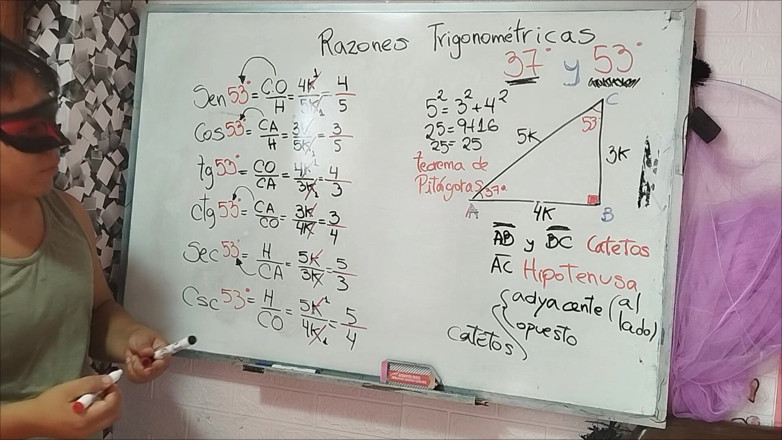 Razones Trigonométricas
37° y 53°
Sen 53° = C.O/H = 4K/5K = 4/5
Cos 53° = CA/H = 3K/5K = 3/5
tg 53° = CO/CA = 4K/3K = 4/3
ctg 53° = CA/CO = 3K/4K = 3/4
Sec 53° = H/CA = 5K/3K = 5/3
Csc 53° = H/CO = 5K/4K = 5/4
5² = 3² + 4²
25 = 9+16
25 = 25
teorema de
Pitágoras
C
53°
5K
3K
37°
A
4K
B
AB y BC Catetos
AC Hipotenusa
Catetos { adyacente (al lado)
opuesto